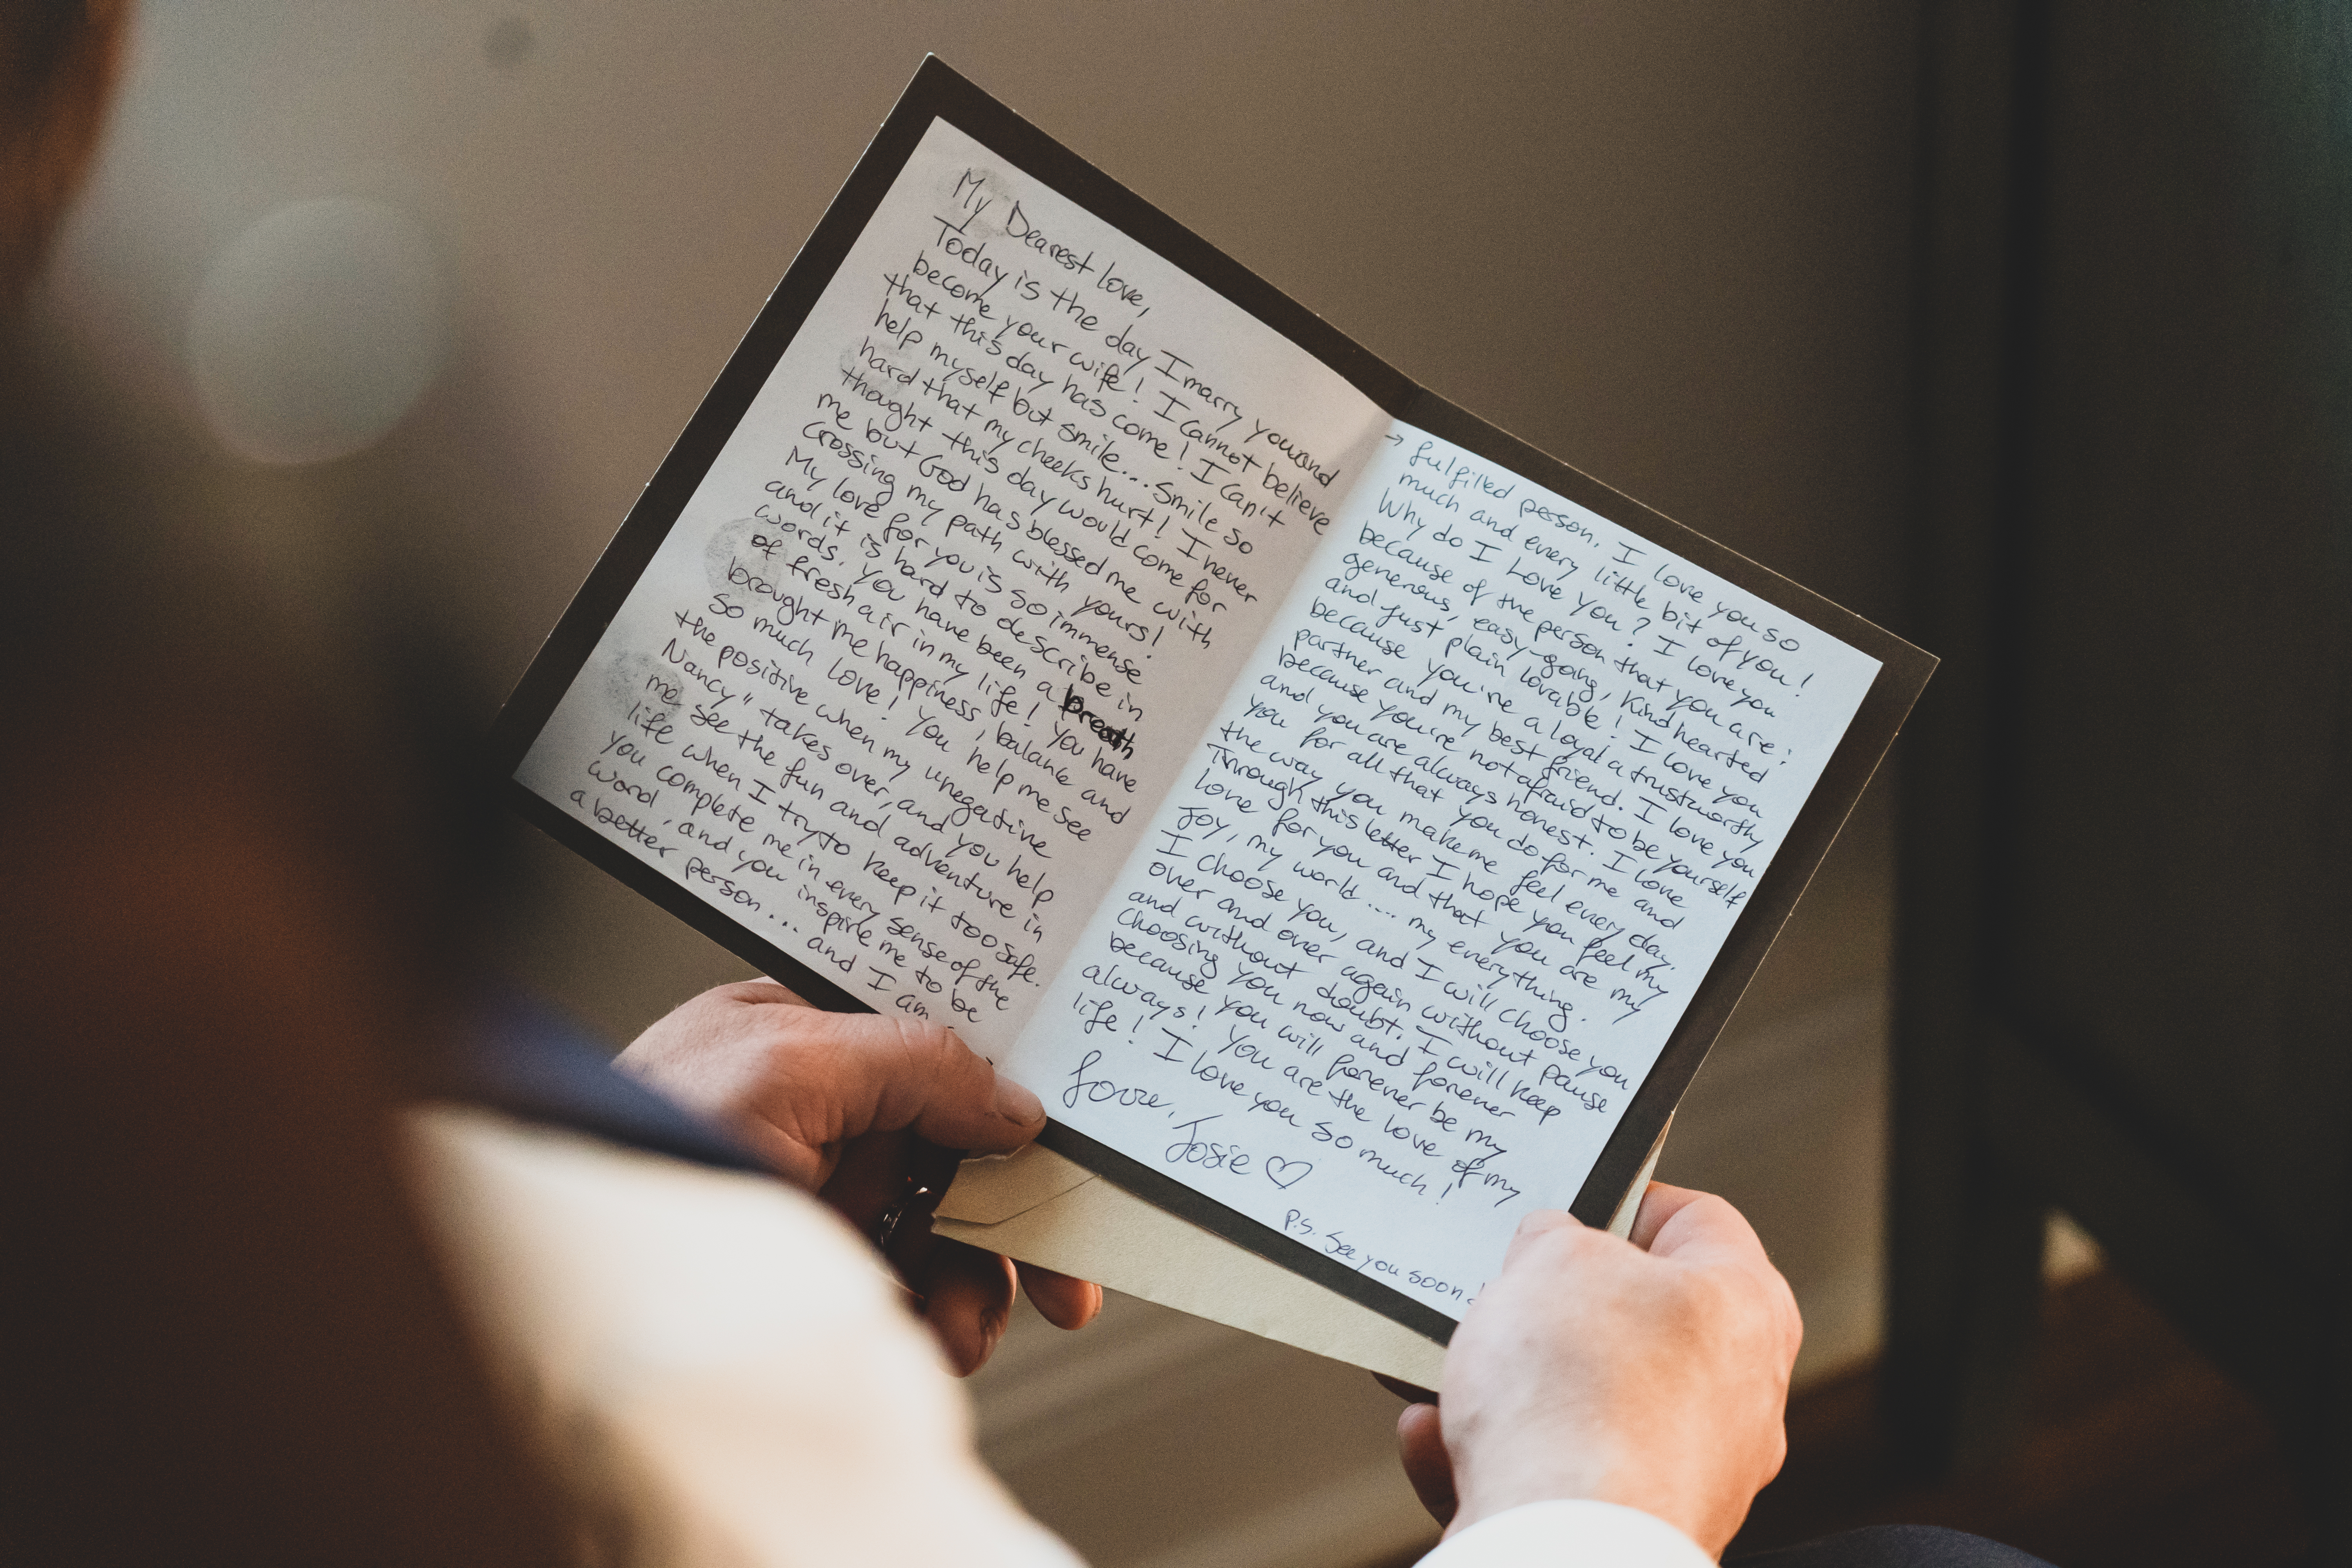 My Dearest love,
Today is the day I marry you and
become your wife! I cannot believe
that this day has come! I can't
help myself but smile... smile so
hard that my cheeks hurt! I never
thought this day would come for
me but God has blessed me with
crossing my path with yours!
My love for you is so immense
and it is hard to describe in
words. You have been a breath
of fresh air in my life! You have
brought me happiness, balance and
so much love! You help me see
the positive when my "negative
Nancy" takes over, and you help
me see the fun and adventure in
life when I try to keep it too safe.
You complete me in every sense of the
word, and you inspire me to be
a better person... and I am
→ fulfilled person. I love you so
much and every little bit of you!
Why do I Love you? I love you
because of the person that you are:
generous, easy-going, kind hearted
and just plain lovable! I love you
because you're a loyal a trustworthy
partner and my best friend. I love you
because you're not afraid to be yourself
and you are always honest. I love
you for all that you do for me and
the way you make me feel every day.
Through this letter I hope you feel my
love for you and that you are my
joy, my world.... my everything.
I choose you, and I will choose you
over and over again without pause
and without doubt. I will keep
choosing you now and forever
because you will forever be my
always! You are the love of my
life! I love you so much!
Love,
Josie ♡
P.S. See you soon!